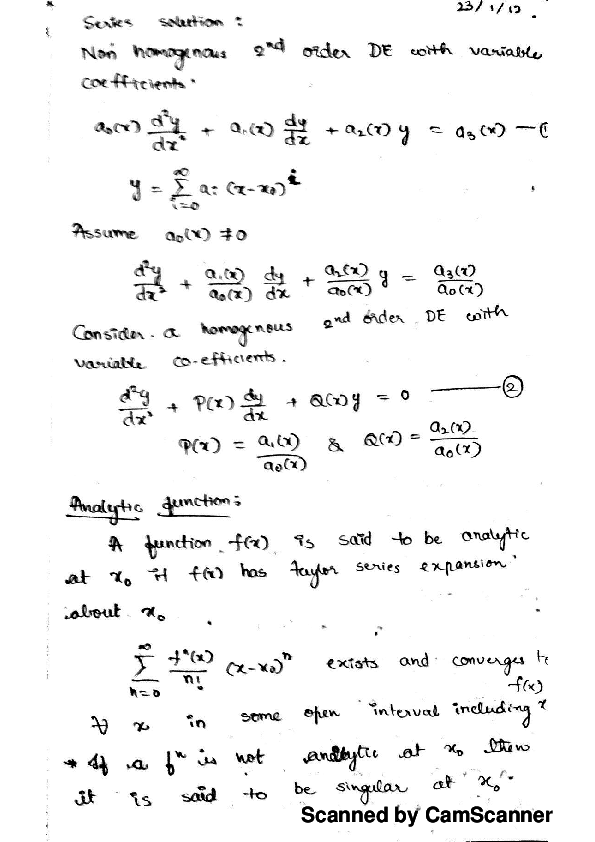 23/1/17.
Series solution :
Non homogenous 2nd order DE with variable
coefficients.
a₀(x) d²y/dx² + a₁(x) dy/dx + a₂(x) y = a₃(x) — (1
y = Σ_{i=0}^{∞} aᵢ (x-x₀)^i
Assume a₀(x) ≠ 0
d²y/dx² + a₁(x)/a₀(x) dy/dx + a₂(x)/a₀(x) y = a₃(x)/a₀(x)
Consider a homogenous 2nd order DE with
variable co-efficients.
d²y/dx² + P(x) dy/dx + Q(x) y = 0 — ②
P(x) = a₁(x)/a₀(x) & Q(x) = a₂(x)/a₀(x)
Analytic function :
A function f(x) is said to be analytic
at x₀ if f(x) has taylor series expansion
about x₀
Σ_{n=0}^{∞} fⁿ(x)/n! (x-x₀)ⁿ exists and converges to
f(x)
∀ x in some open interval including x
* If a fⁿ is not analytic at x₀ then
it is said to be singular at x₀.
Scanned by CamScanner